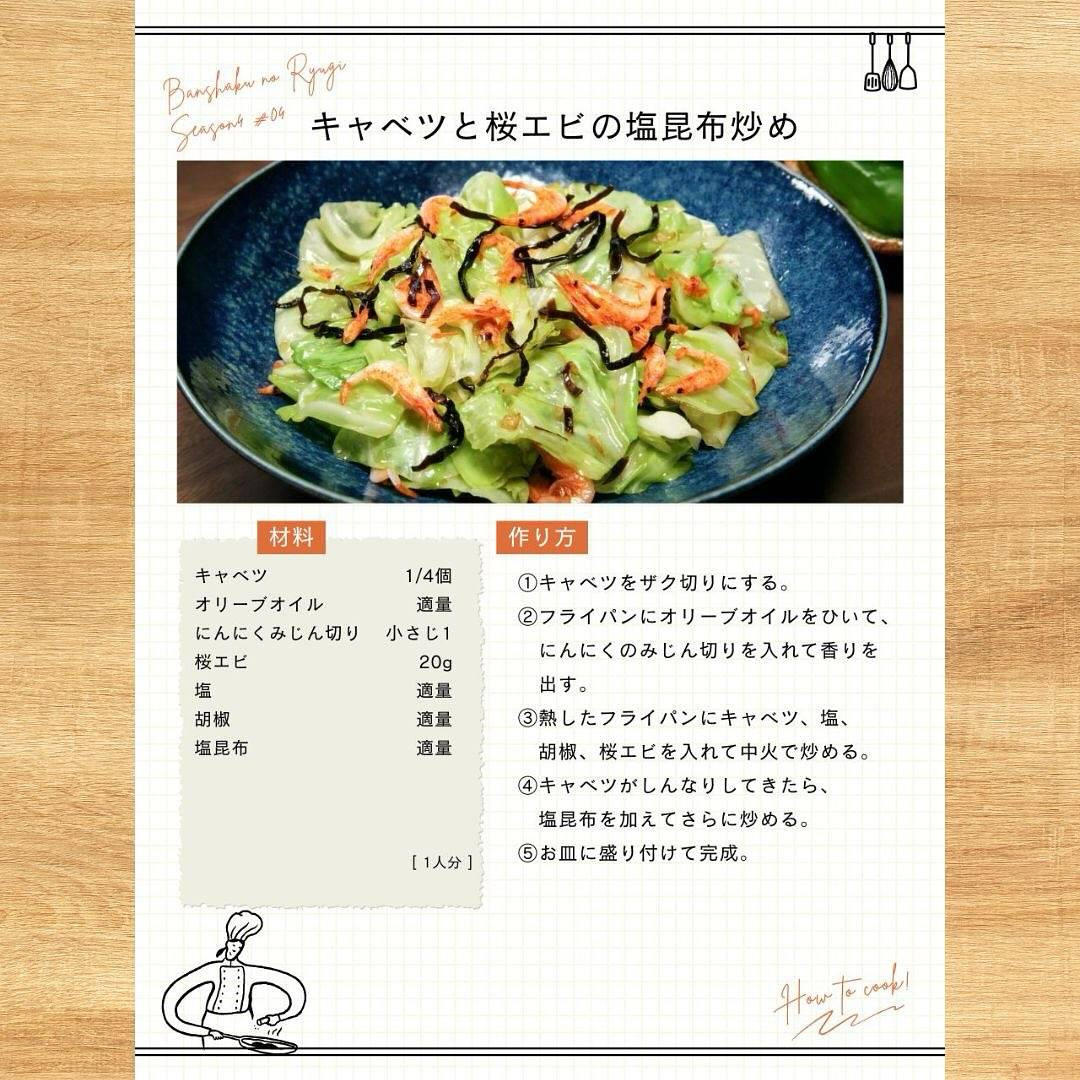 Banshaku no Ryugi
Season4 #04
キャベツと桜エビの塩昆布炒め
材料
キャベツ 1/4個
オリーブオイル 適量
にんにくみじん切り 小さじ1
桜エビ 20g
塩 適量
胡椒 適量
塩昆布 適量
[ 1人分 ]
作り方
①キャベツをザク切りにする。
②フライパンにオリーブオイルをひいて、
にんにくのみじん切りを入れて香りを
出す。
③熱したフライパンにキャベツ、塩、
胡椒、桜エビを入れて中火で炒める。
④キャベツがしんなりしてきたら、
塩昆布を加えてさらに炒める。
⑤お皿に盛り付けて完成。
How to cook!